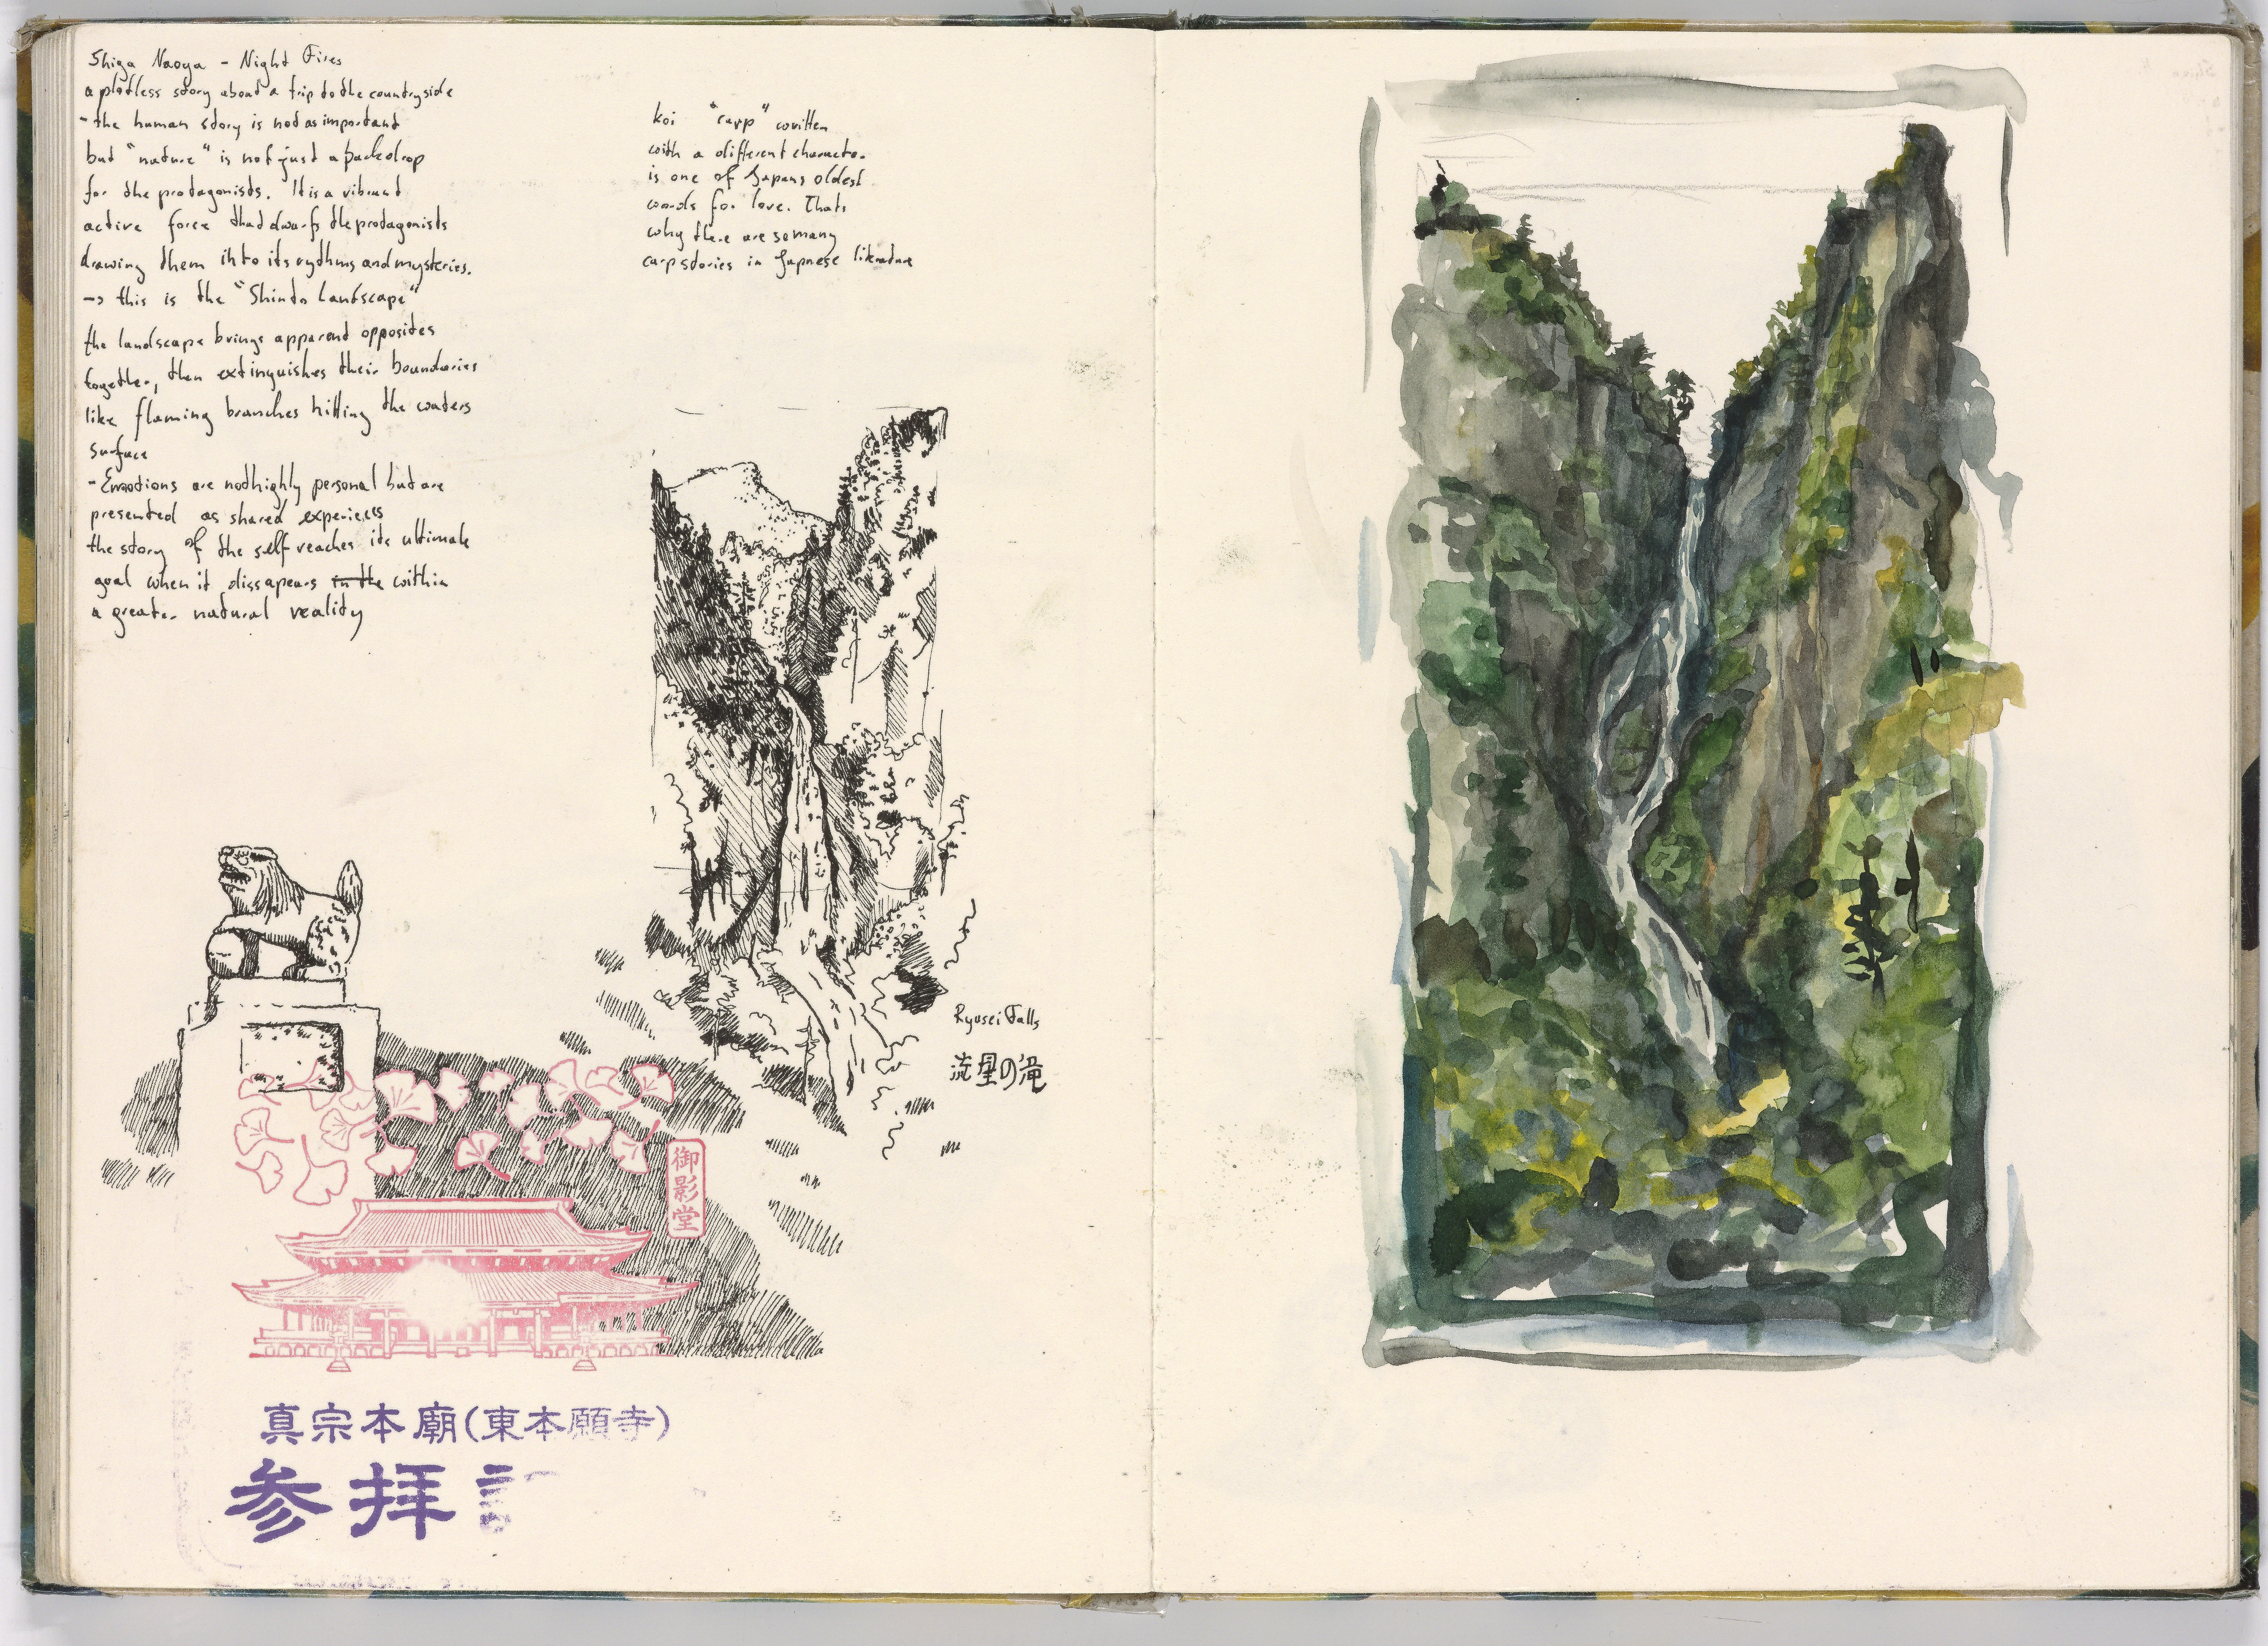 Shiga Naoya - Night Fires
a plotless story about a trip to the countryside
- the human story is not as important
but "nature" is not just a backdrop
for the protagonists. It is a vibrant
active force that dwarfs the protagonists
drawing them into its rythms and mysteries.
-> this is the "Shinto Landscape"
the landscape brings apparent opposites
together, then extinguishes their boundaries
like flaming branches hitting the waters
surface
- Emotions are not highly personal but are
presented as shared experiences
the story of the self reaches its ultimate
goal when it dissapears in the within
a greater natural reality
koi "carp" written
with a different character
is one of Japans oldest
words for love. Thats
why there are so many
carp stories in Japnese literature
Ryusei Falls
流星の滝
御影堂
真宗本廟(東本願寺)
参拝